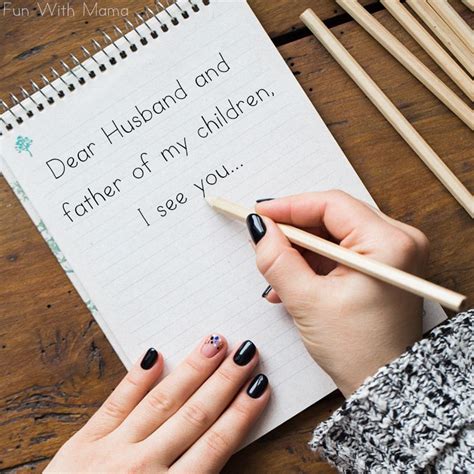 Fun With Mama
Dear Husband and
father of my children,
I see you...